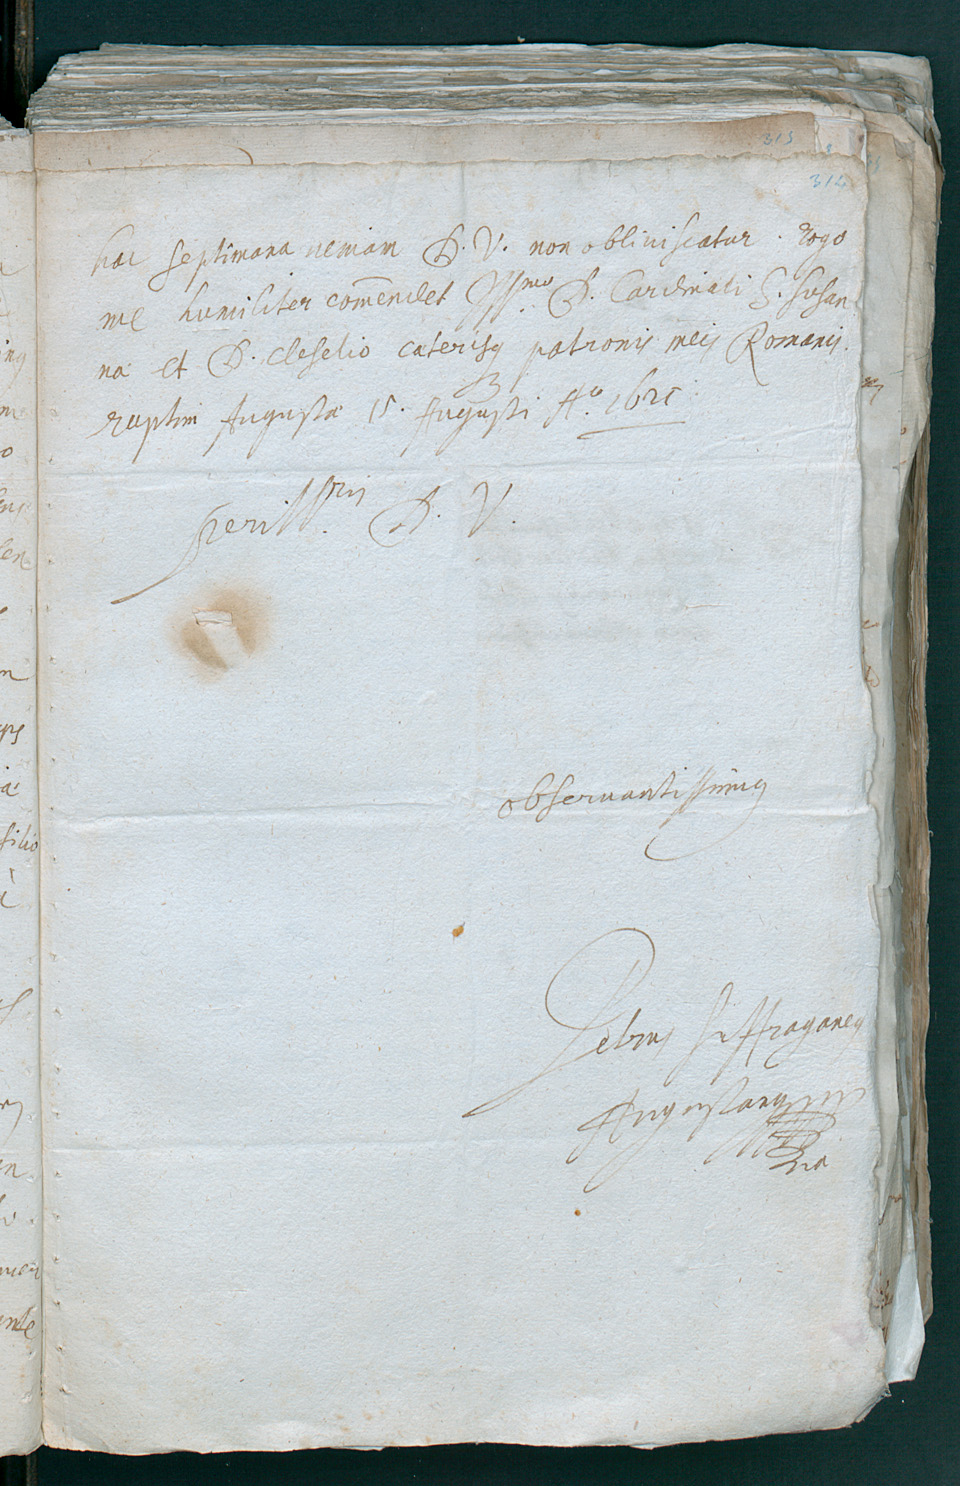 313
314
hac septimana veniam D. V. non obliuiscatur. rogo
me humiliter com̄endet Ill.mo D. Cardinali S. Susan
na et D. Cleselio caterisq patronis meis Romanis.
raptim Augustæ 15. Augusti Aº. 1625
D. V.
obseruantissimus
Petrus Suffraganeus
Augustanus